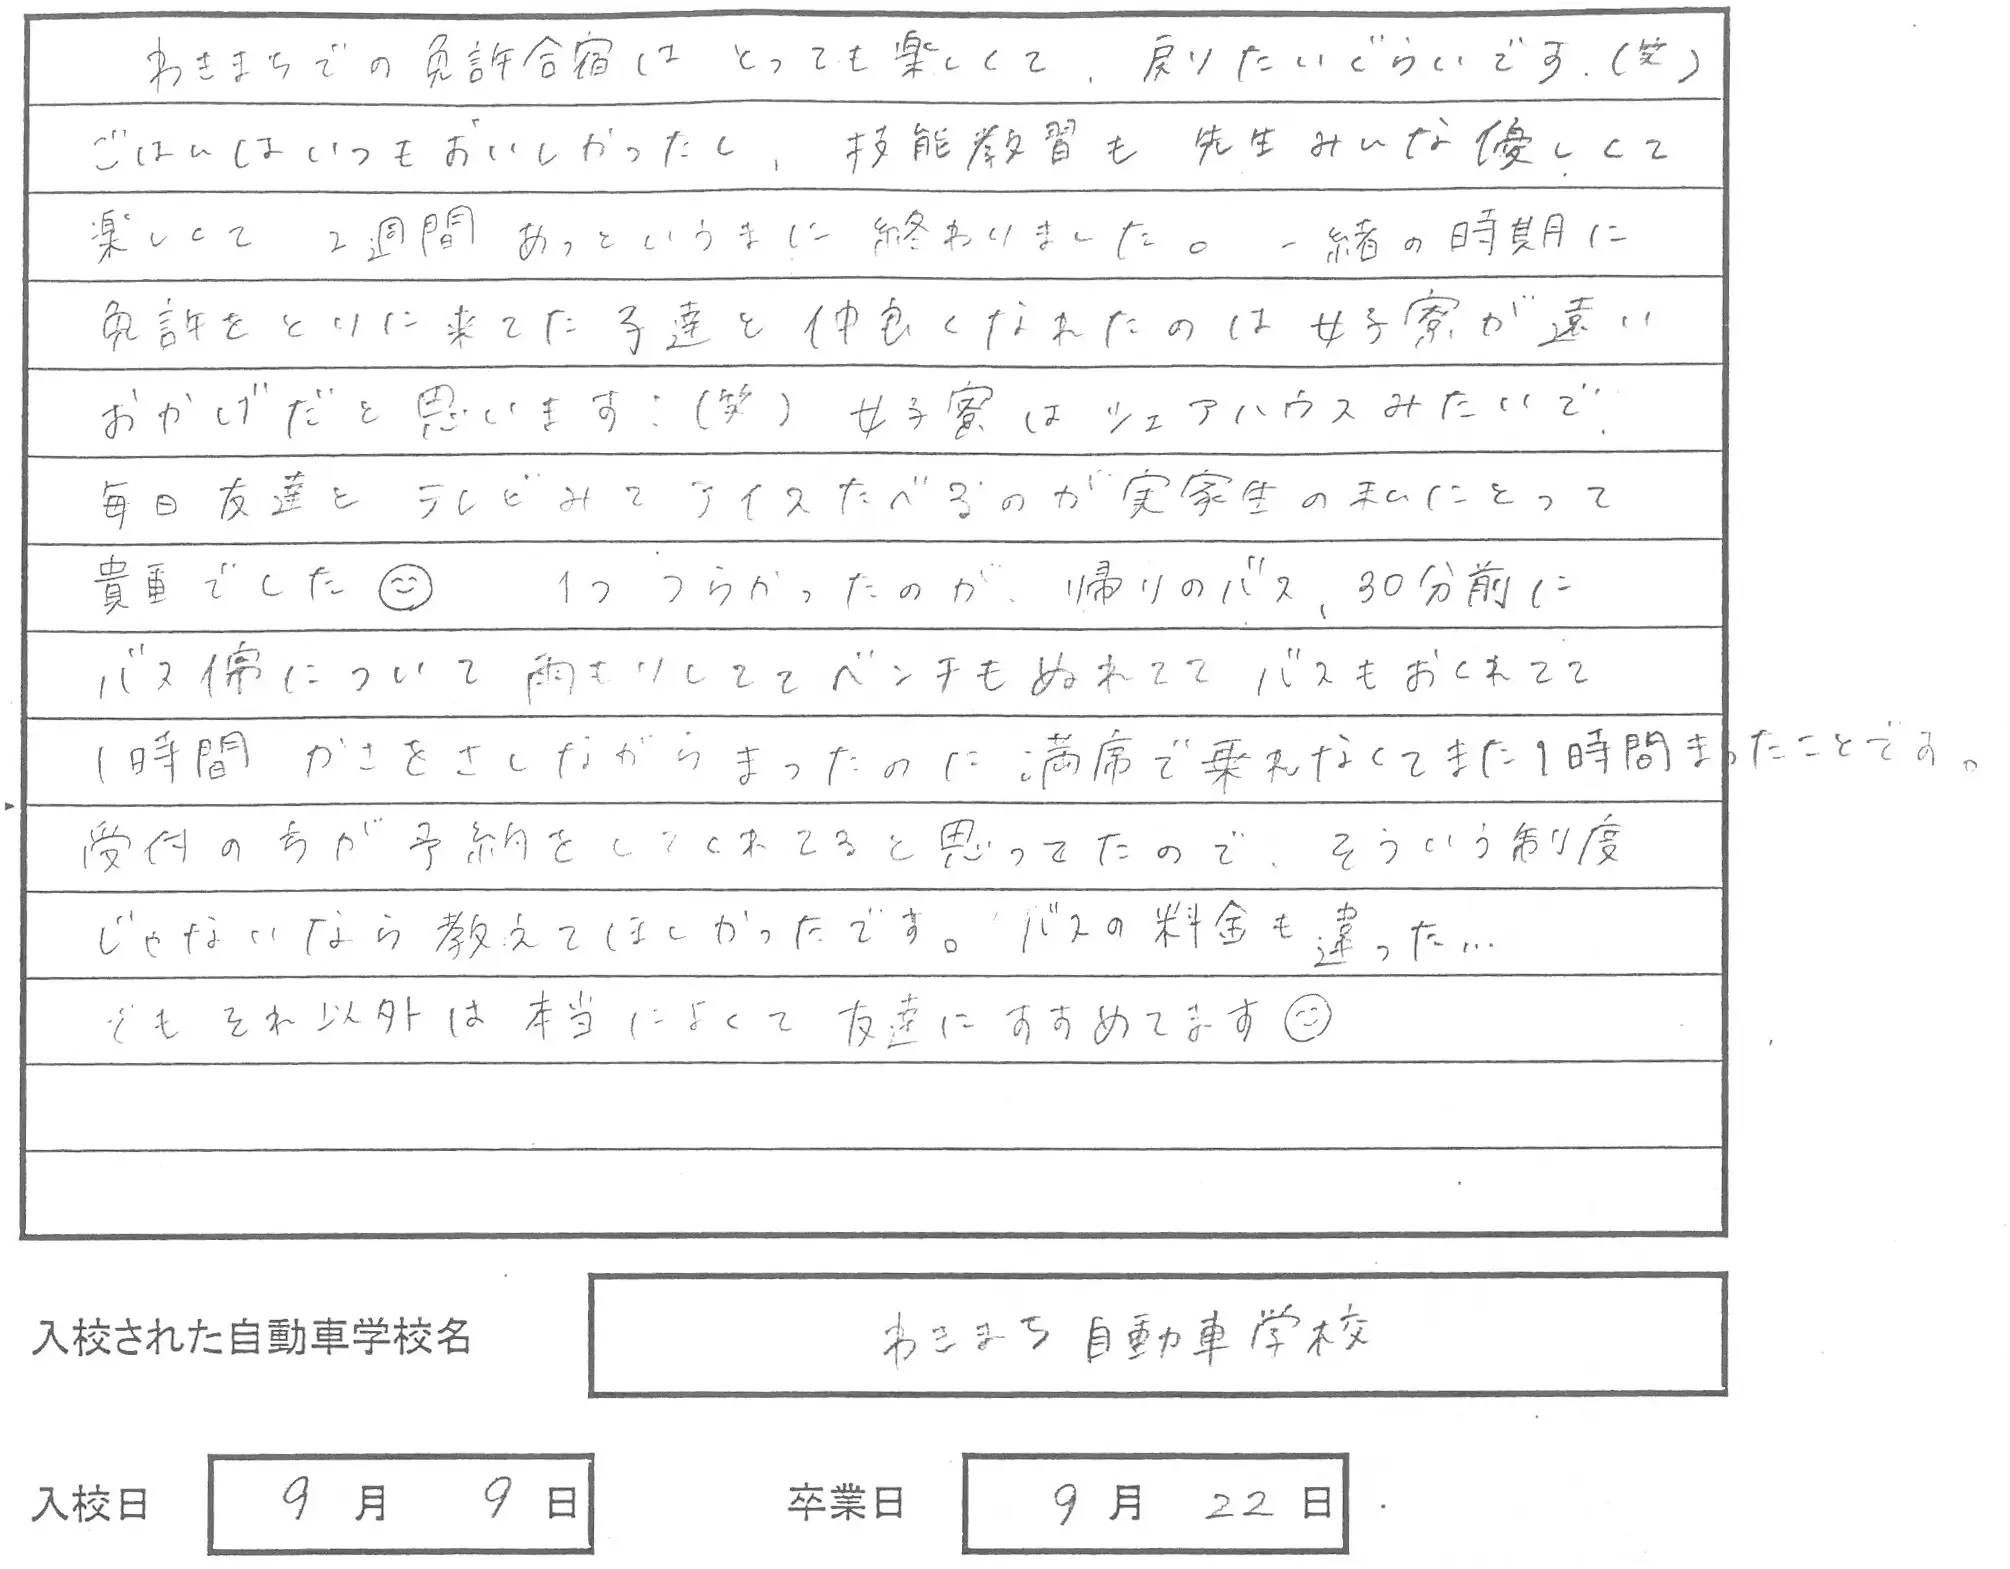 わきまちでの免許合宿はとっても楽しくて、戻りたいぐらいです.(笑)
ごはんはいつもおいしかったし、技能教習も先生みんな優しくて
楽しくて 2週間あっというまに終わりました。一緒の時期に
免許をとりに来てた子達と仲良くなれたのは女子寮が遠い
おかげだと思います:(笑) 女子寮はシェアハウスみたいで、
毎日友達とテレビみてアイスたべるのが実家生の私にとって
貴重でした 1つつらかったのが、帰りのバス、30分前に
バス停について雨もりしててベンチもぬれててバスもおくれてて
1時間かさをさしながらまったのに満席で乗れなくてまた1時間まったことです。
受付の方が予約をしてくれてると思ってたので、そういう制度
じゃないなら教えてほしかったです。バスの料金も違った…
でもそれ以外は本当によくて友達にすすめてます
入校された自動車学校名 わきまち自動車学校
入校日 9月 9日 卒業日 9月 22日